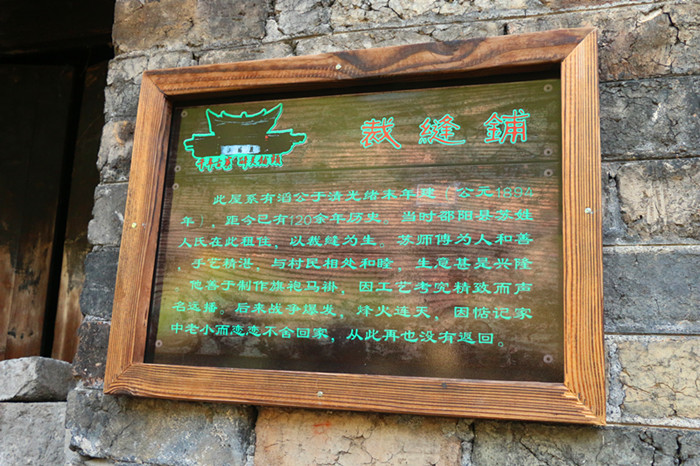 裁缝鋪
此屋系有滔公于清光绪末年建(公元1894
年),距今已有120余年历史。当时邵阳县苏姓
人民在此租住,以裁缝为生。苏师傅为人和善
,手艺精湛,与村民相处和睦,生意甚是兴隆
他善于制作旗袍马褂,因工艺考究精致而声
名远播。后来战争爆发,烽火连天,因惦记家
中老小而恋恋不舍回家,从此再也没有返回。